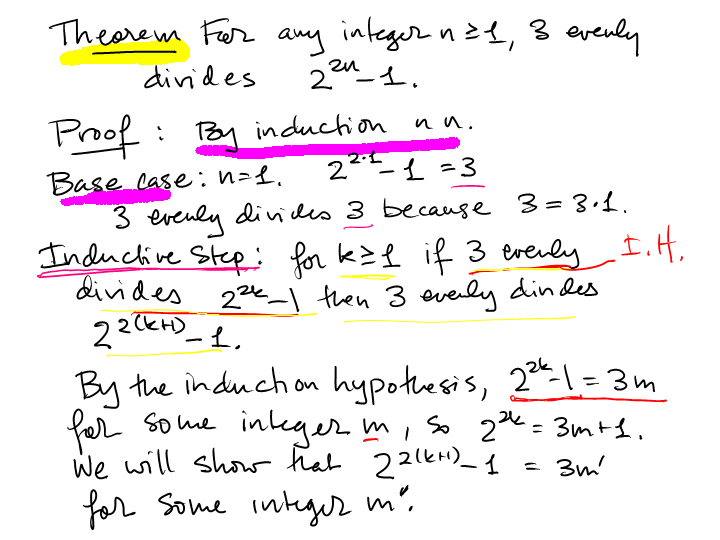 Theorem For any integer n ≥ 1, 3 evenly
divides 2^{2n} - 1.
Proof : By induction n n.
Base case: n=1. 2^{2·1} - 1 = 3
3 evenly divides 3 because 3 = 3·1.
Inductive Step: for k ≥ 1 if 3 evenly I.H.
divides 2^{2k} - 1 then 3 evenly divides
2^{2(k+1)} - 1.
By the induction hypothesis, 2^{2k} - 1 = 3m
for some integer m, so 2^{2k} = 3m+1.
We will show that 2^{2(k+1)} - 1 = 3m'
for some integer m'.